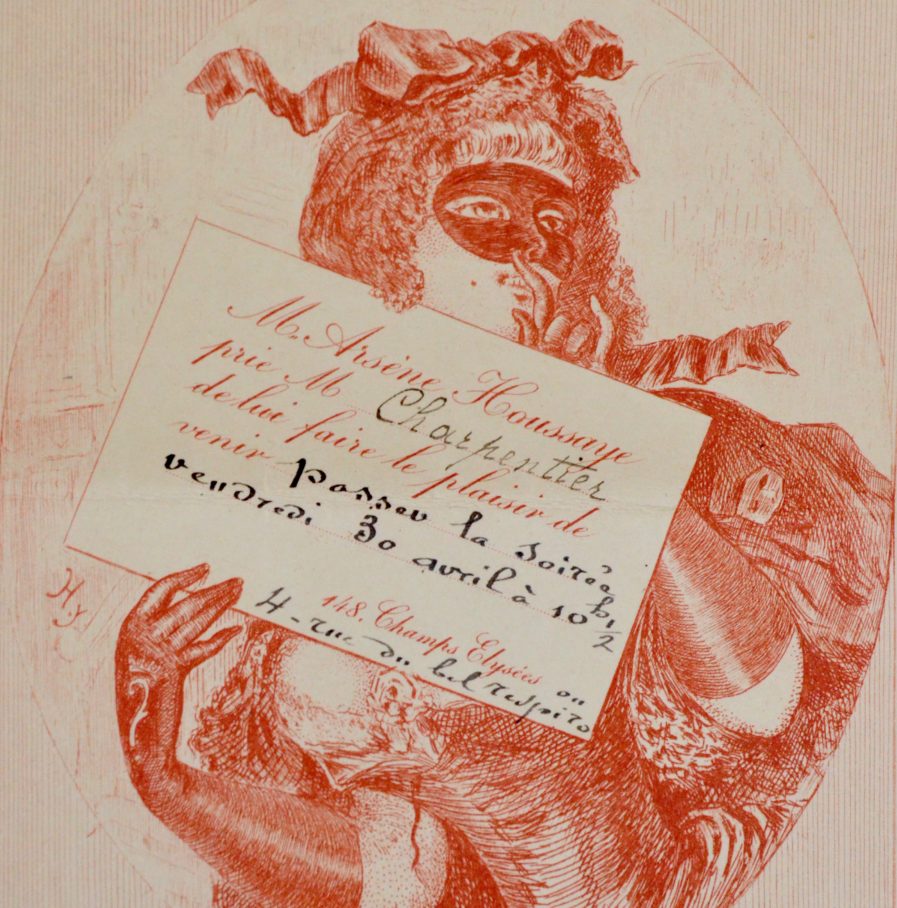 M. Arsène Houssaye
prie M Charpentier
de lui faire le plaisir de
venir passer la soirée
vendredi 30 avril à 10 h 1/2
148. Champs Elysées ou
4 - rue du bel respiro